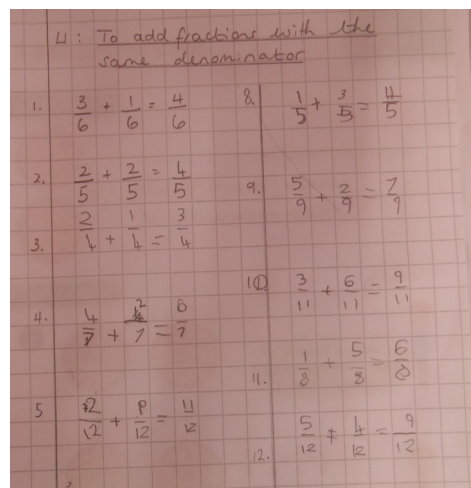 LI: To add fractions with the
same denominator
1. 3/6 + 1/6 = 4/6
2. 2/5 + 2/5 = 4/5
3. 2/4 + 1/4 = 3/4
4. 4/7 + 2/7 = 6/7
5 2/12 + 9/12 = 11/12
8. 1/5 + 3/5 = 4/5
9. 5/9 + 2/9 = 7/9
10 3/11 + 6/11 = 9/11
11. 1/8 + 5/8 = 6/8
12. 5/12 + 4/12 = 9/12